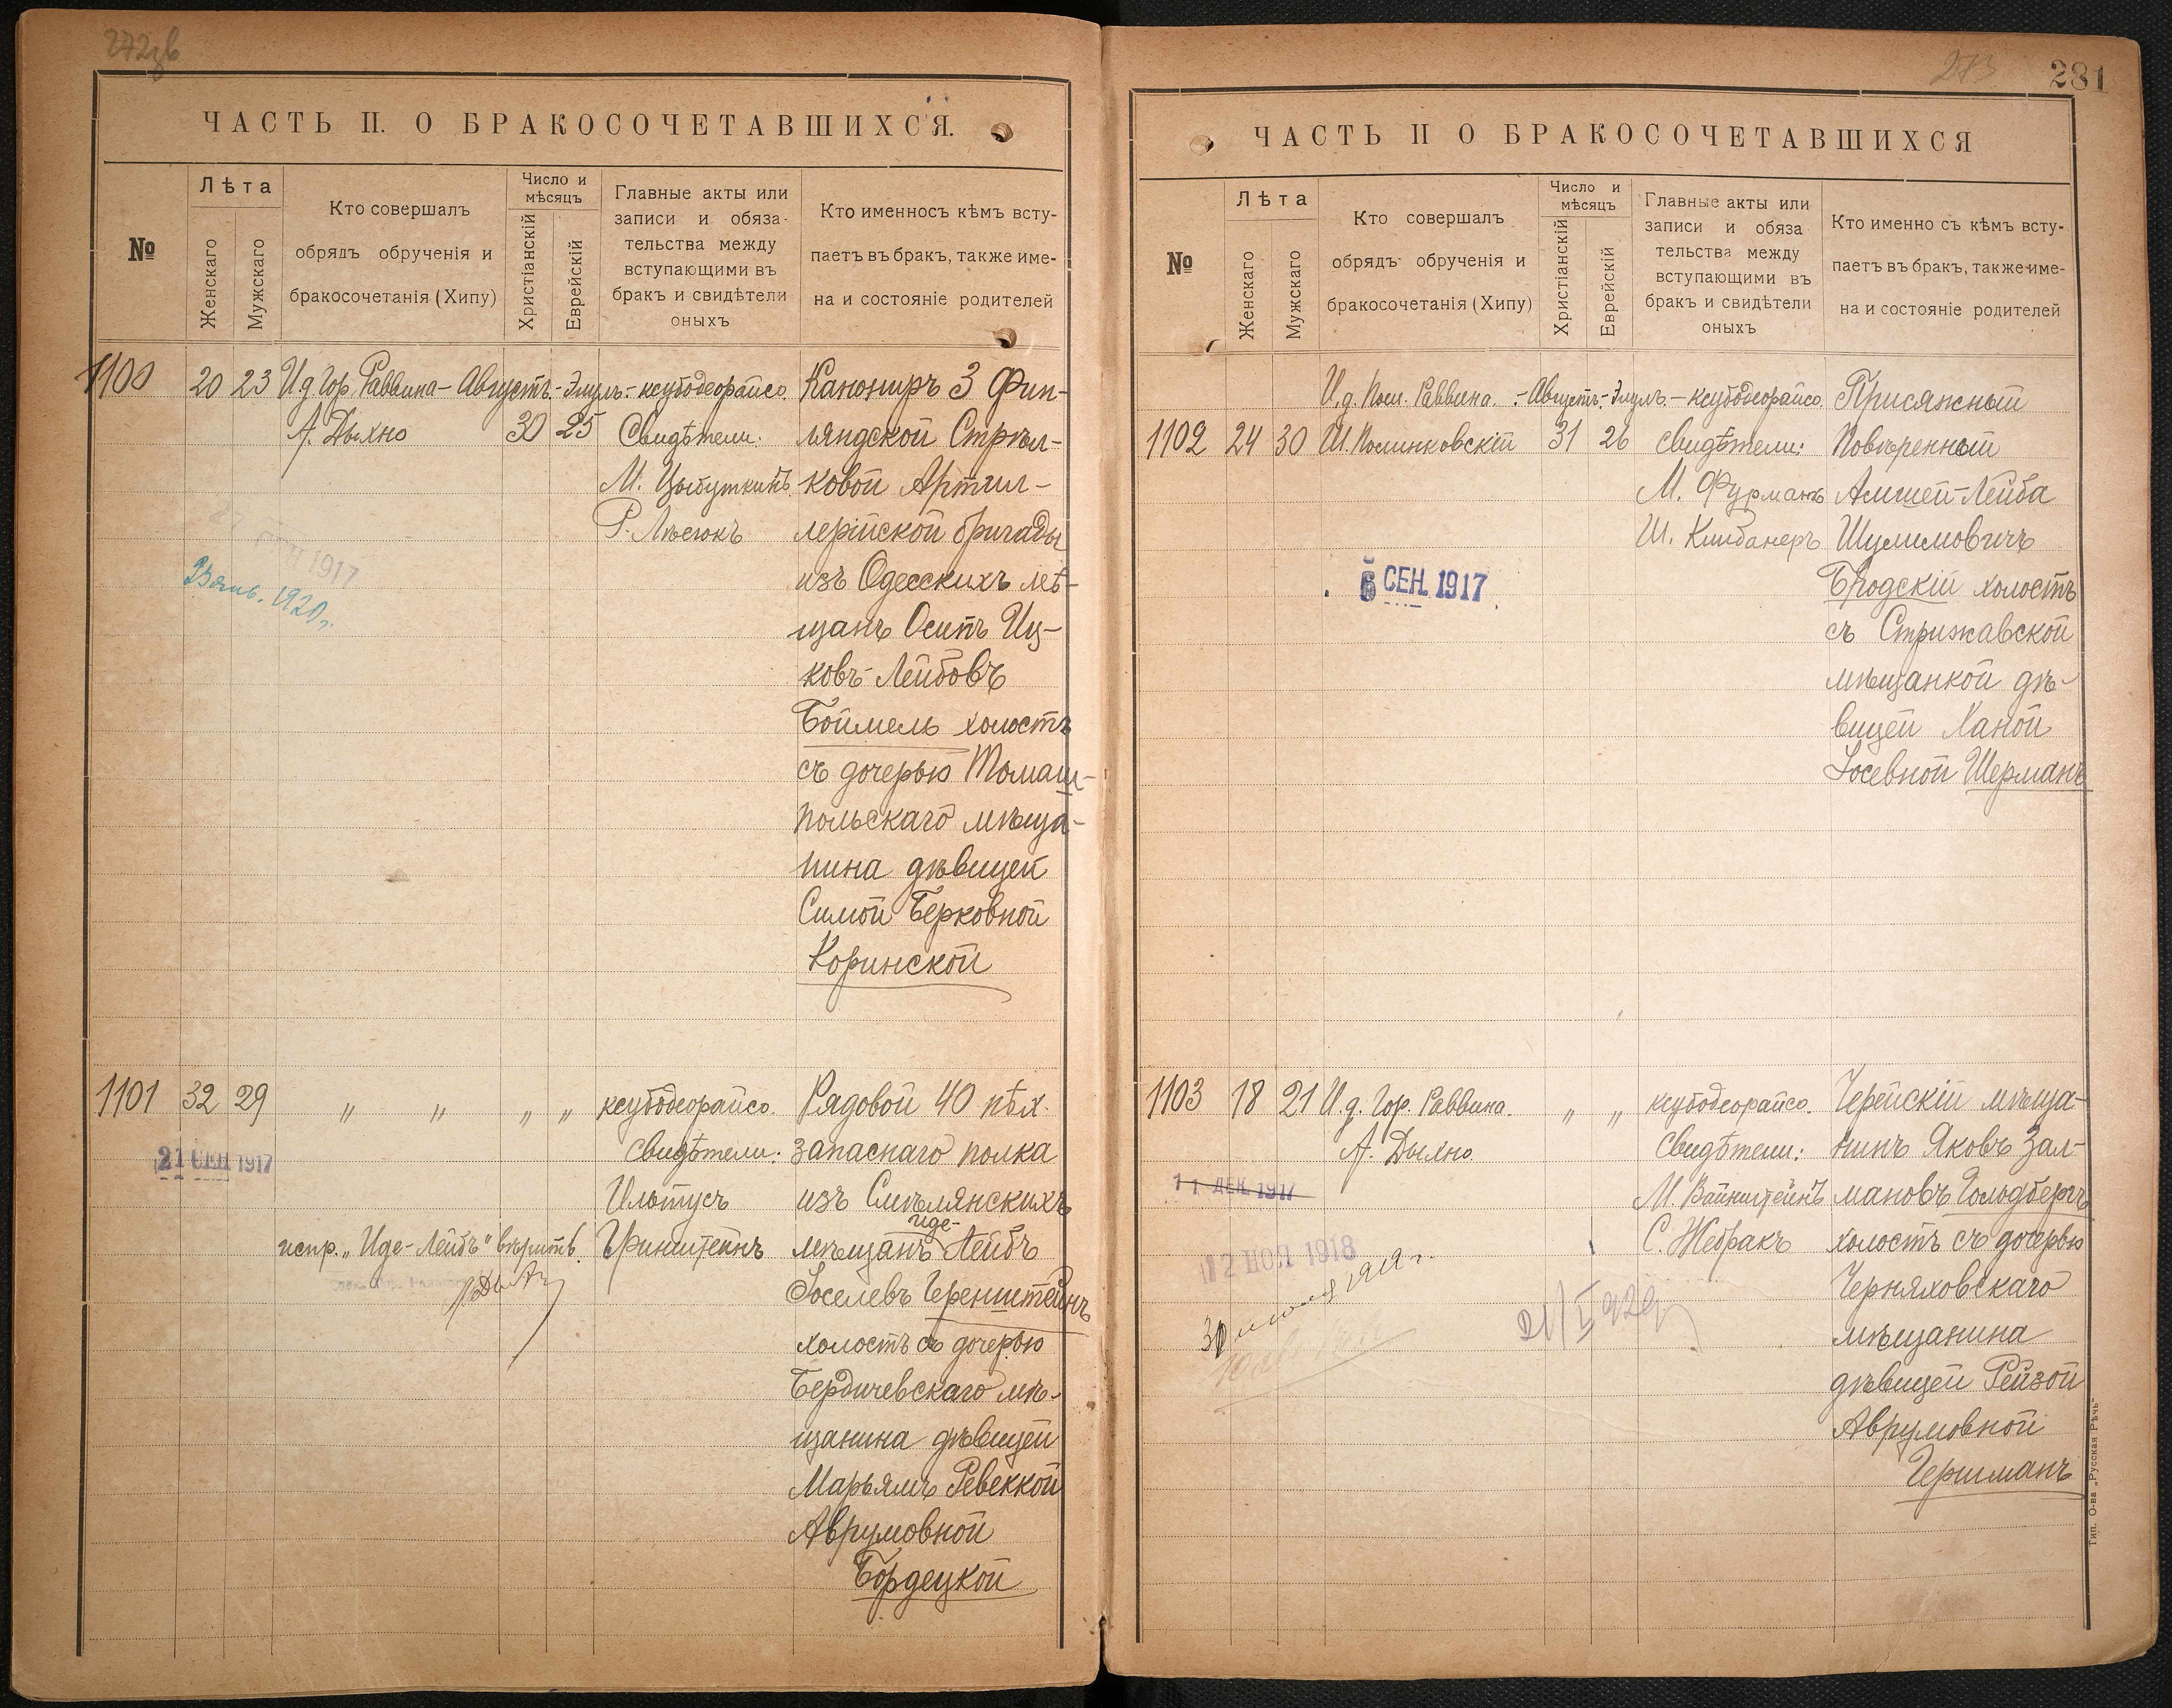 ЧАСТЬ II. О БРАКОСОЧЕТАВШИХСЯ.
№
Лѣта
Женскаго
Мужскаго
Кто совершалъ
обрядъ обрученія и
бракосочетанія (Хипу)
Число и
мѣсяцъ
Христіанскій
Еврейскій
Главные акты или
записи и обяза-
тельства между
вступающими въ
бракъ и свидѣтели
оныхъ
Кто именносъ кѣмъ всту-
паетъ въ бракъ, также име-
на и состояніе родителей
1100
20
23
И д Гор. Раввина
А. Дыхно
Августъ
30
Элулъ
25
ксубодеорайсо.
Свидѣтели:
М. Цыбуткинъ
Р. Лѣсюкъ
Канониръ 3 Фин-
ляндской Стрѣл-
ковой Артил-
лерійской бригады
изъ Одесскихъ мѣ-
щанъ Осипъ Иц-
ковъ-Лейбовъ
Боймель холостъ
съ дочерью Томаш-
польскаго мѣща-
нина дѣвицей
Симой Берковной
Коринской
СЕН 1917
1920 г.
1101
32
29
" "
" "
ксубодеорайсо.
Свидѣтели:
Ильтусъ
Гринштейнъ
Рядовой 40 пѣх.
запаснаго полка
изъ Смѣлянскихъ
Иде-
мѣщанъ Лейбъ
Іоселевъ Геренштейнъ
холостъ съ дочерью
Бердичевскаго мѣ-
щанина дѣвицей
Марьямъ Ревеккой
Аврумовной
Бордецкой
21 СЕН 1917
испр. „Иде-Лейбъ" вѣрить.
281
273
ЧАСТЬ II О БРАКОСОЧЕТАВШИХСЯ
№
Лѣта
Женскаго
Мужскаго
Кто совершалъ
обрядъ обрученія и
бракосочетанія (Хипу)
Число и
мѣсяцъ
Христіанскій
Еврейскій
Главные акты или
записи и обяза
тельства между
вступающими въ
бракъ и свидѣтели
оныхъ
Кто именно съ кѣмъ всту-
паетъ въ бракъ, также име-
на и состояніе родителей
1102
24
30
И. д. Раввина.
Ш. Полинковскій
Августъ
31
Элулъ
26
ксубодеорайсо.
свидѣтели:
М. Фурманъ
Ш. Клибанеръ
Присяжный
Повѣренный
Амшей-Лейба
Шулимовичъ
Бродскій холостъ
съ Стрижавской
мѣщанкой дѣ-
вицей Ханой
Іосевной Шерманъ
6 СЕН. 1917
1103
18
21
И. д. Гор. Раввина.
А. Дыхно.
" "
ксубодеорайсо.
Свидѣтели:
М. Вайнштейнъ
С. Жебракъ
Черейскій мѣща-
нинъ Яковъ Зал-
мановъ Голодбергъ
холостъ съ дочерью
Черняховскаго
мѣщанина
дѣвицей Рейзой
Аврумовной
Гершманъ
11 ДЕК 1917
12 НОЯ 1918
Тип. О-ва „Русская Рѣчь"